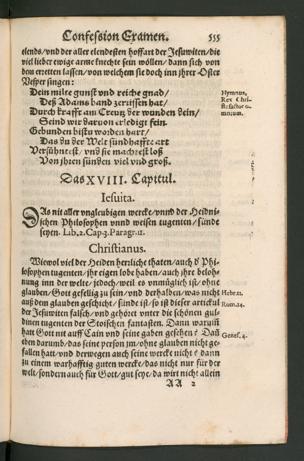 Confession Examen. 555
elends/vnd der aller elendesten hoffart der Jesuwiten/die
viel lieber ewige arme knechte sein wöllen/ dann sich von
dem erretten lassen/von welchem sie doch inn jhrer Oster
Vesper singen:
Dein milte gunst vnd reiche gnad/
Hymnus,
Rex Chri-
ste factor o-
mnium.
Deß Adams band zerrissen hat/
Durch krafft am Creutz der wunden sein/
Seind wir daruon erledigt fein.
Gebunden bistu worden hart/
Das du der Welt sündhaffte art
Versühntest/ vnd sie machest loß
Von jhren sünden viel vnd groß.
Das XVIII. Capitul.
Iesuita.
DAs nit aller vngleubigen wercke/vnnd der Heidni-
schen Philosophen vnnd weisen tugenten/sünde
seyen. Lib.2.Cap.3.Paragr.11.
Christianus.
Wiewol viel der Heiden herrliche thaten/auch d' Phi-
losophen tugenten/jhr eigen lobe haben/auch jhre beloh-
nung inn der welte/jedoch/weil es vnmüglich ist/ohne
glauben/Gott gefellig zu sein/vnd derhalben/was nicht
Hebr.11.
auß dem glauben geschicht/ sünde ist/so ist dieser articul
Rom.14.
der Jesuwiten falsch/vnd gehöret vnter die schönen gul-
dinen tugenten der Stoischen fantasten. Dann warumb
hat Gott nit auff Cain vnd seine gaben gesehen? Dañ
Genes.4.
eben darumb/das seine person jm/ohne glauben nicht ge-
fallen hatt/vnd derwegen auch seine werck nicht? dann
zu einem warhafftig guten werck/das nicht nur für der
welt/sondern auch für Gott/gut seye/da wirt nicht allein
AA 2